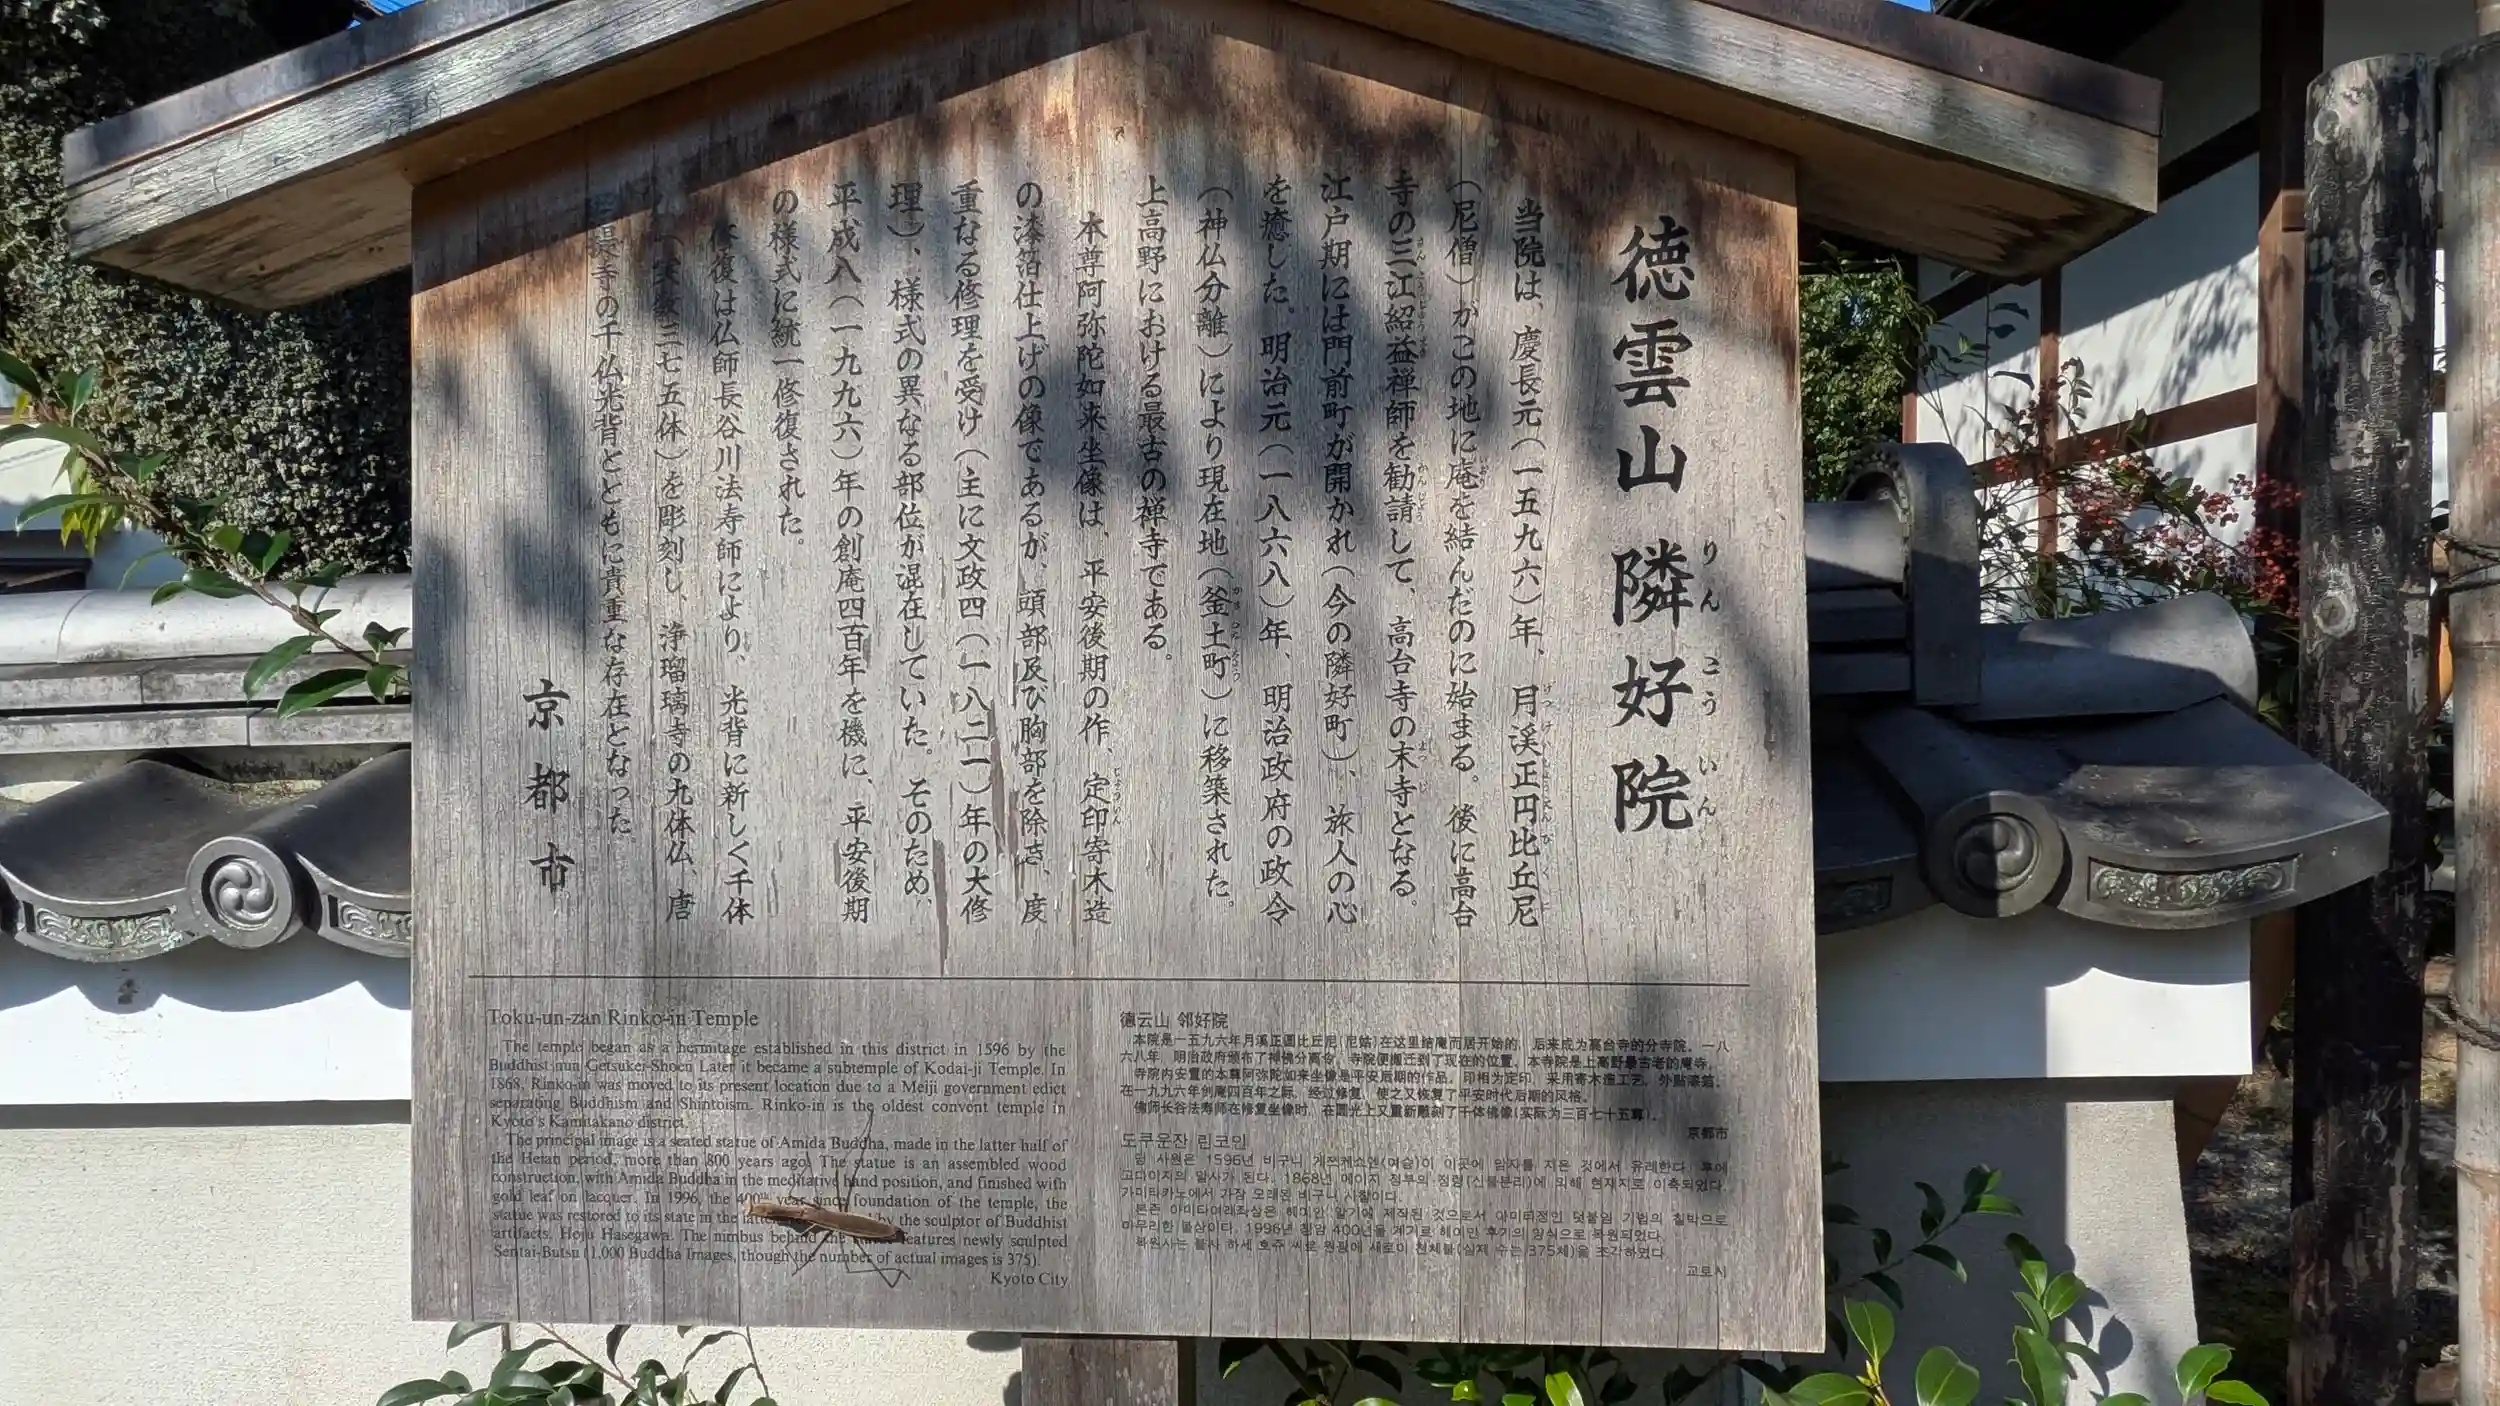 徳雲山 隣好院
りん こう いん
当院は、慶長元(一五九六)年、月溪正円比丘尼
(尼僧)がこの地に庵を結んだのに始まる。後に高台
寺の三江紹益禅師を勧請して、高台寺の末寺となる。
江戸期には門前町が開かれ(今の隣好町)、旅人の心
を癒した。明治元(一八六八)年、明治政府の政令
(神仏分離)により現在地(釜土町)に移築された。
上高野における最古の禅寺である。
本尊阿弥陀如来坐像は、平安後期の作、定印寄木造
の漆箔仕上げの像であるが、頭部及び胸部を除き、度
重なる修理を受け(主に文政四(一八二一)年の大修
理)、様式の異なる部位が混在していた。そのため、
平成八(一九九六)年の創庵四百年を機に、平安後期
の様式に統一修復された。
修復は仏師長谷川法寿師により、光背に新しく千体
仏(実数三七五体)を彫刻し、浄瑠璃寺の九体仏、唐
招提寺の千仏光背とともに貴重な存在となった。
京都市
Toku-un-zan Rinko-in Temple
The temple began as a hermitage established in this district in 1596 by the
Buddhist nun Getsukei-Shoen Later it became a subtemple of Kodai-ji Temple. In
1868, Rinko-in was moved to its present location due to a Meiji government edict
separating Buddhism and Shintoism. Rinko-in is the oldest convent temple in
Kyoto's Kamitakano district.
The principal image is a seated statue of Amida Buddha, made in the latter half of
the Heian period, more than 800 years ago. The statue is an assembled wood
construction, with Amida Buddha in the meditative hand position, and finished with
gold leaf on lacquer. In 1996, the 400th year since foundation of the temple, the
statue was restored to its state in the latter by the sculptor of Buddhist
artifacts, Hoju Hasegawa. The nimbus behind the features newly sculpted
Sentai-Butsu (1,000 Buddha Images, though the number of actual images is 375).
Kyoto City
德云山 邻好院
本院是一五九六年月溪正圆比丘尼(尼姑)在这里结庵而居开始的，后来成为高台寺的分寺院。一八
六八年，明治政府颁布了神佛分离令，寺院便搬迁到了现在的位置。本寺院是上高野最古老的庵寺。
寺院内安置的本尊阿弥陀如来坐像是平安后期的作品。印相为定印，采用寄木造工艺，外贴漆箔。
在一九九六年创庵四百年之际，经过修复，使之又恢复了平安时代后期的风格。
佛师长谷法寿师在修复坐像时，在圆光上又重新雕刻了千体佛像(实际为三百七十五尊)。
京都市
도쿠운잔 린코인
당 사원은 1596년 비구니 게쯔케쇼엔(여승)이 이곳에 암자를 지은 것에서 유래한다. 후에
고다이지의 말사가 된다. 1868년 메이지 정부의 정령(신불분리)에 의해 현재지로 이축되었다.
가미타카노에서 가장 오래된 비구니 사찰이다.
본존 아미타여래좌상은 헤이안 말기에 제작된 것으로서 아미타정인 덧붙임 기법의 칠박으로
마무리한 불상이다. 1996년 창암 400년을 계기로 헤이안 후기의 양식으로 복원되었다.
복원사는 불사 하세 호쥬 씨로 원광에 새로이 천체불(실제 수는 375체)을 조각하였다.
교토시